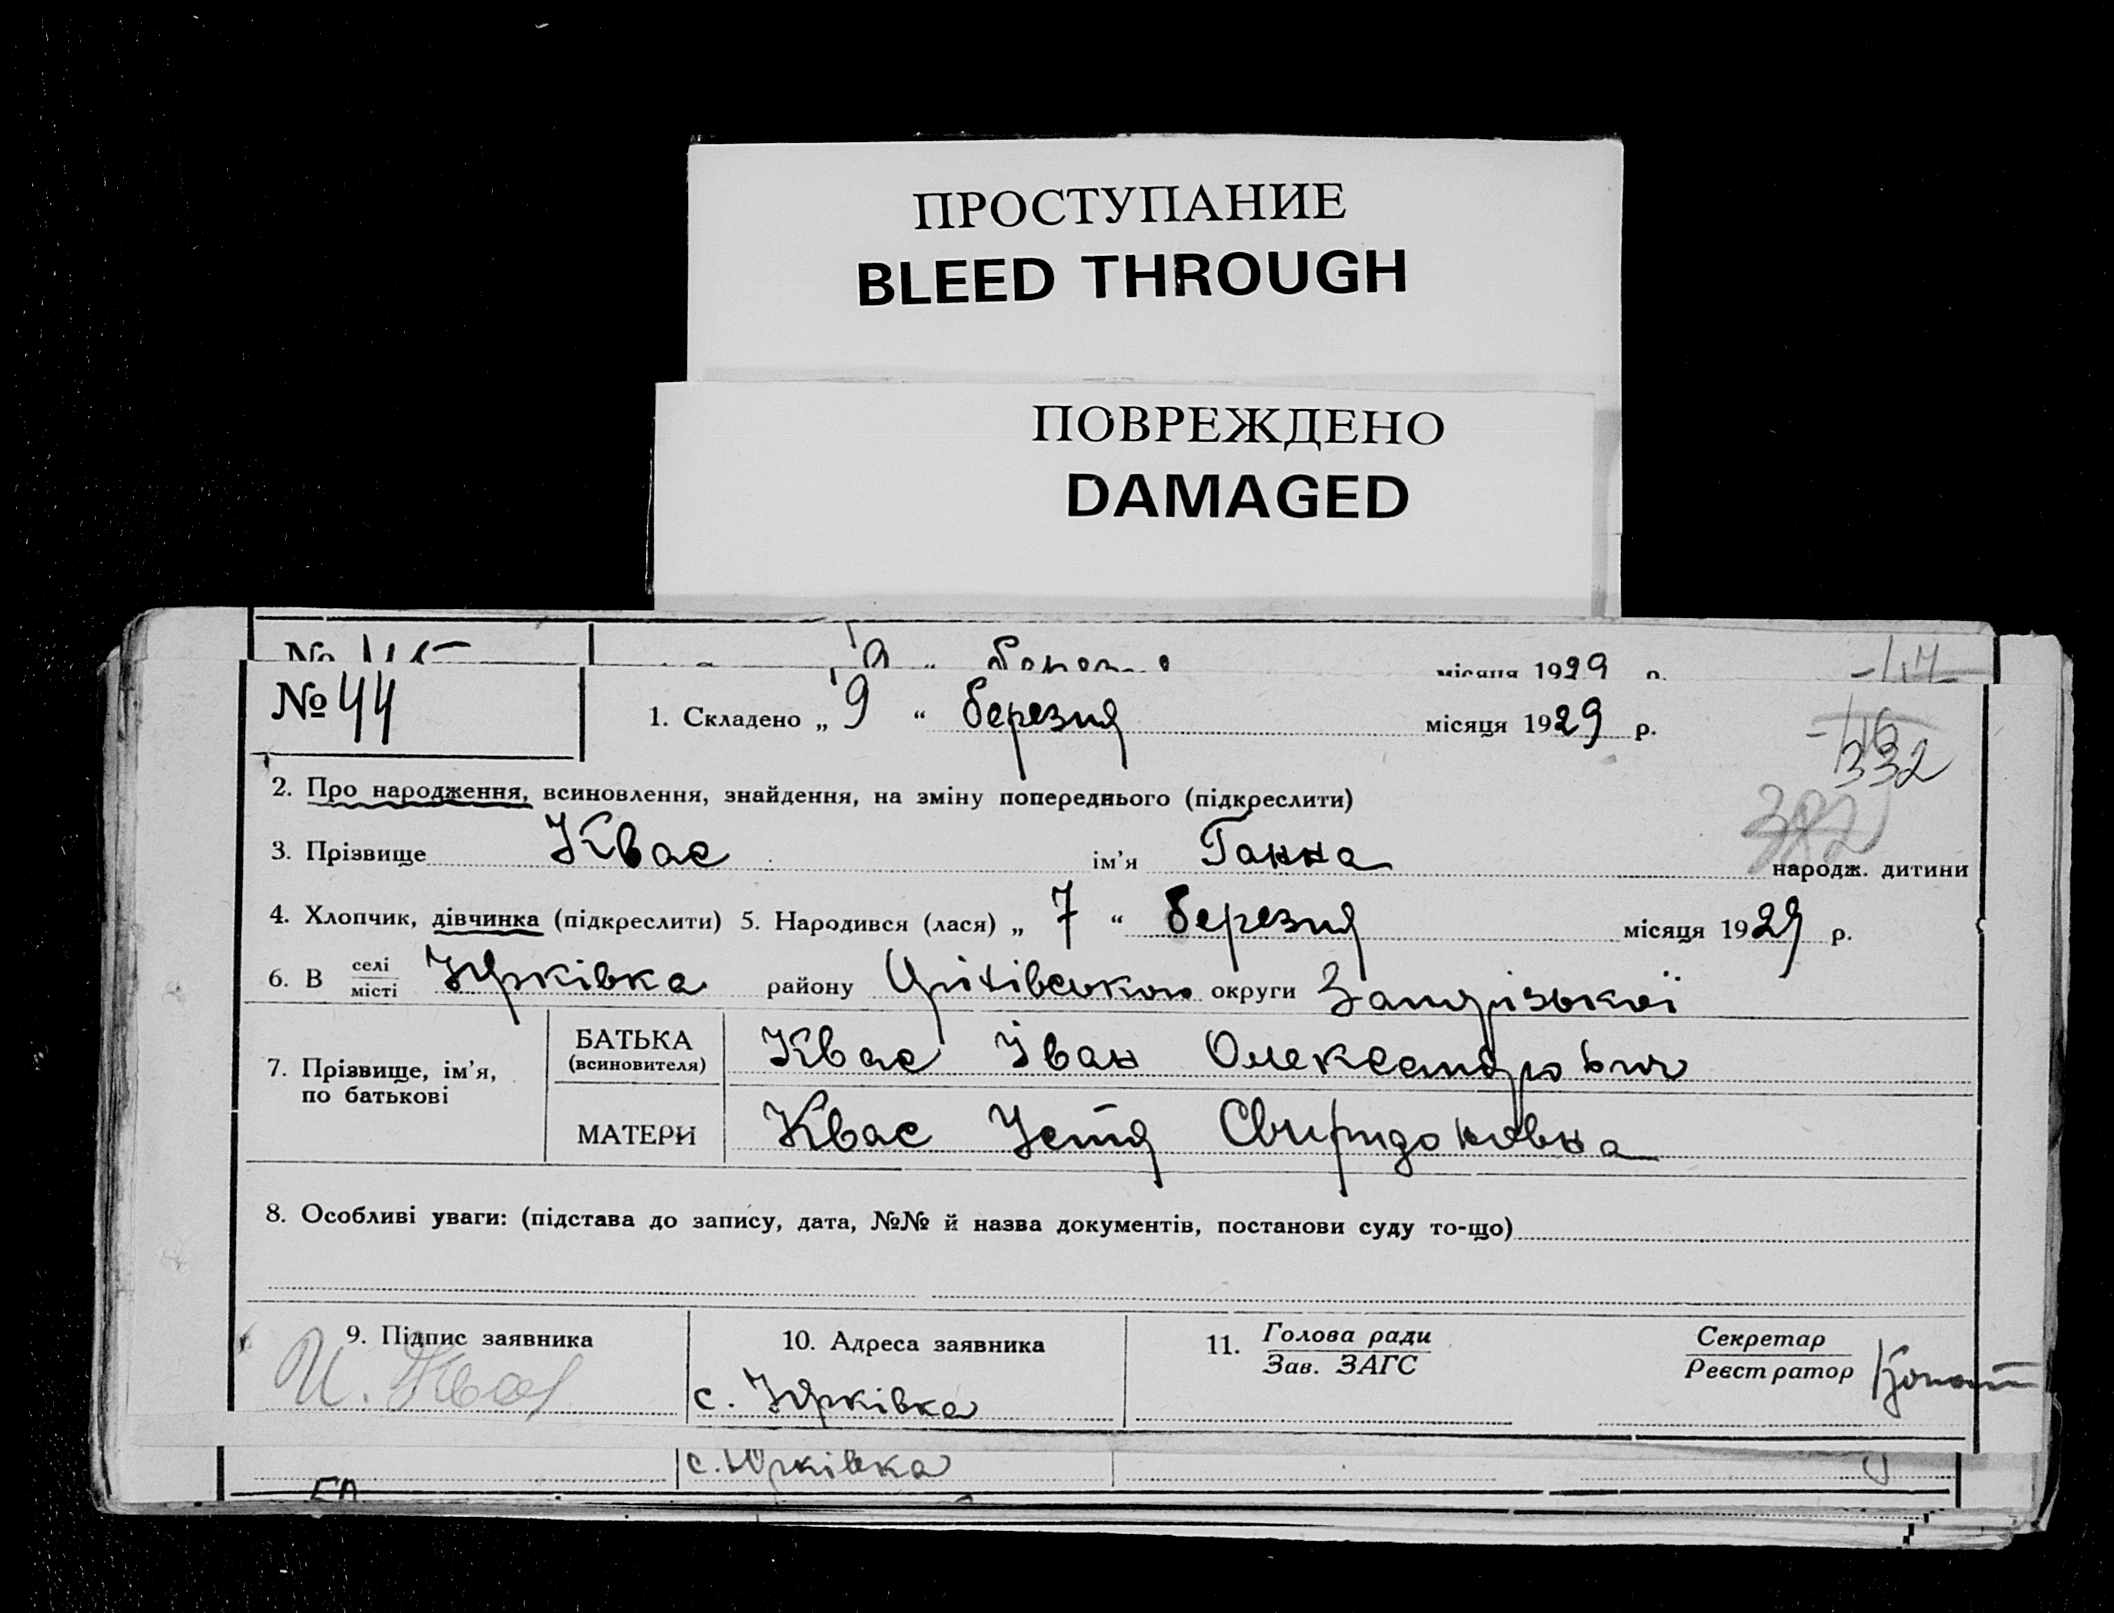 ПРОСТУПАНИЕ
BLEED THROUGH
ПОВРЕЖДЕНО
DAMAGED
№ 45 9 “ березня місяця 1929 р.
№ 44 1. Складено „ 9 “ березня місяця 1929 р.
332
2. Про народження, всиновлення, знайдення, на зміну попереднього (підкреслити)
3. Прізвище Квас ім’я Ганна народж. дитини
4. Хлопчик, дівчинка (підкреслити) 5. Народився (лася) „ 7 “ березня місяця 1929 р.
6. В селі місті Юрківка району округи Запорізької
7. Прізвище, ім’я, по батькові
БАТЬКА (всиновителя) Квас Іван Олександрович
МАТЕРИ Квас Устя Свиридоновна
8. Особливі уваги: (підстава до запису, дата, №№ й назва документів, постанови суду то-що)
9. Підпис заявника 10. Адреса заявника 11. Голова ради Зав. ЗАГС Секретар Реєстратор
И. Квас с. Юрківка
с. Юрківка